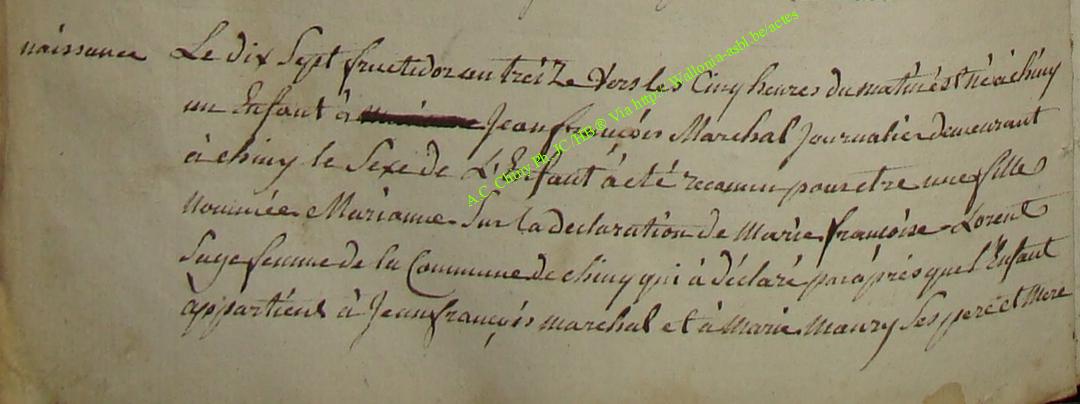 naissance Le dix Sept fructidor an treize Vers les Cinq heures du matin est né à chiny
un Enfant à Jean françois Marechal Journalier demeurant
à chiny le Sexe de L'Enfant à eté reconnu pour etre une fille
Nommée Marianne Sur la declaration de Marie françoise Lorent
Sage femme de la Commune de chiny qui à déclaré par après que l'Enfant
appartient à Jean françois marechal et à Marie Maury Ses pere et Mere
A.C. Chiny Ph. JC /HB ® Via https://Wallonia-asbl.be/actes